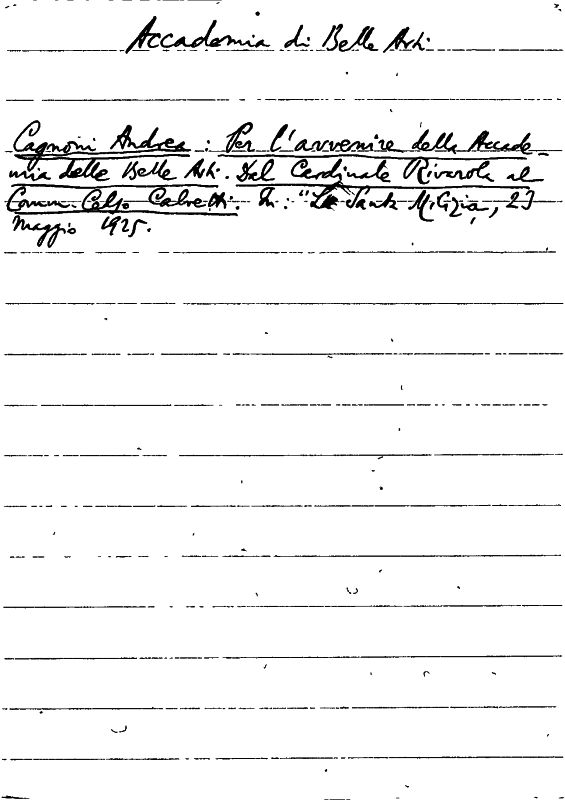 Accademia di Belle Arti
Cagnoni Andrea : Per l'avvenire della Accade-
mia delle Belle Arti. Dal Cardinale Rivarola al
Comm. Celso Calvetti. In: "La Santa Milizia, 23
Maggio 1925.